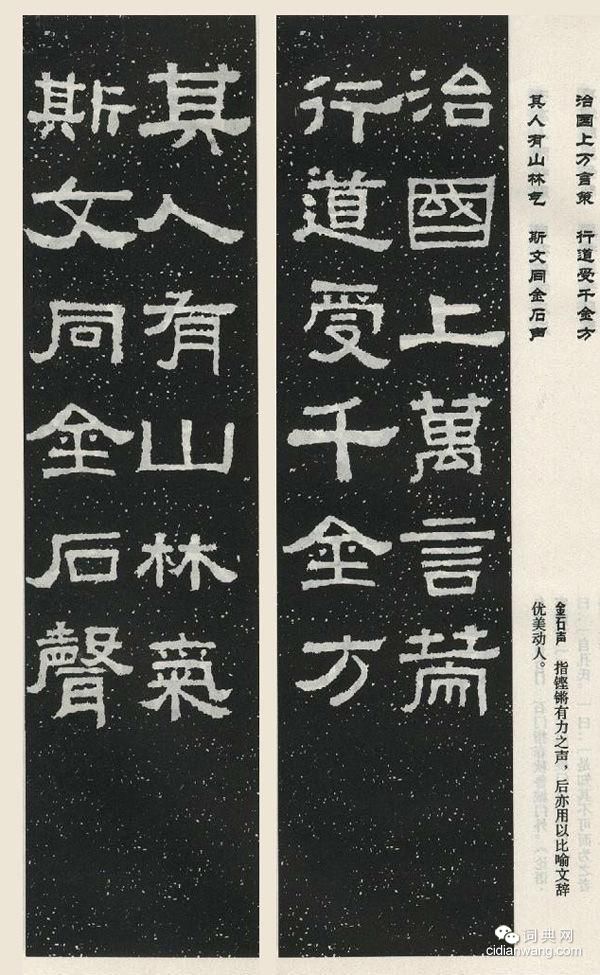 治国上万言策 行道受千金方
其人有山林气 斯文同金石声
金石声 指铿锵有力之声，后亦用以比喻文辞
优美动人。
治國上萬言策
行道受千金方
其人有山林氣
斯文同金石聲
词典网
cidianwang.com